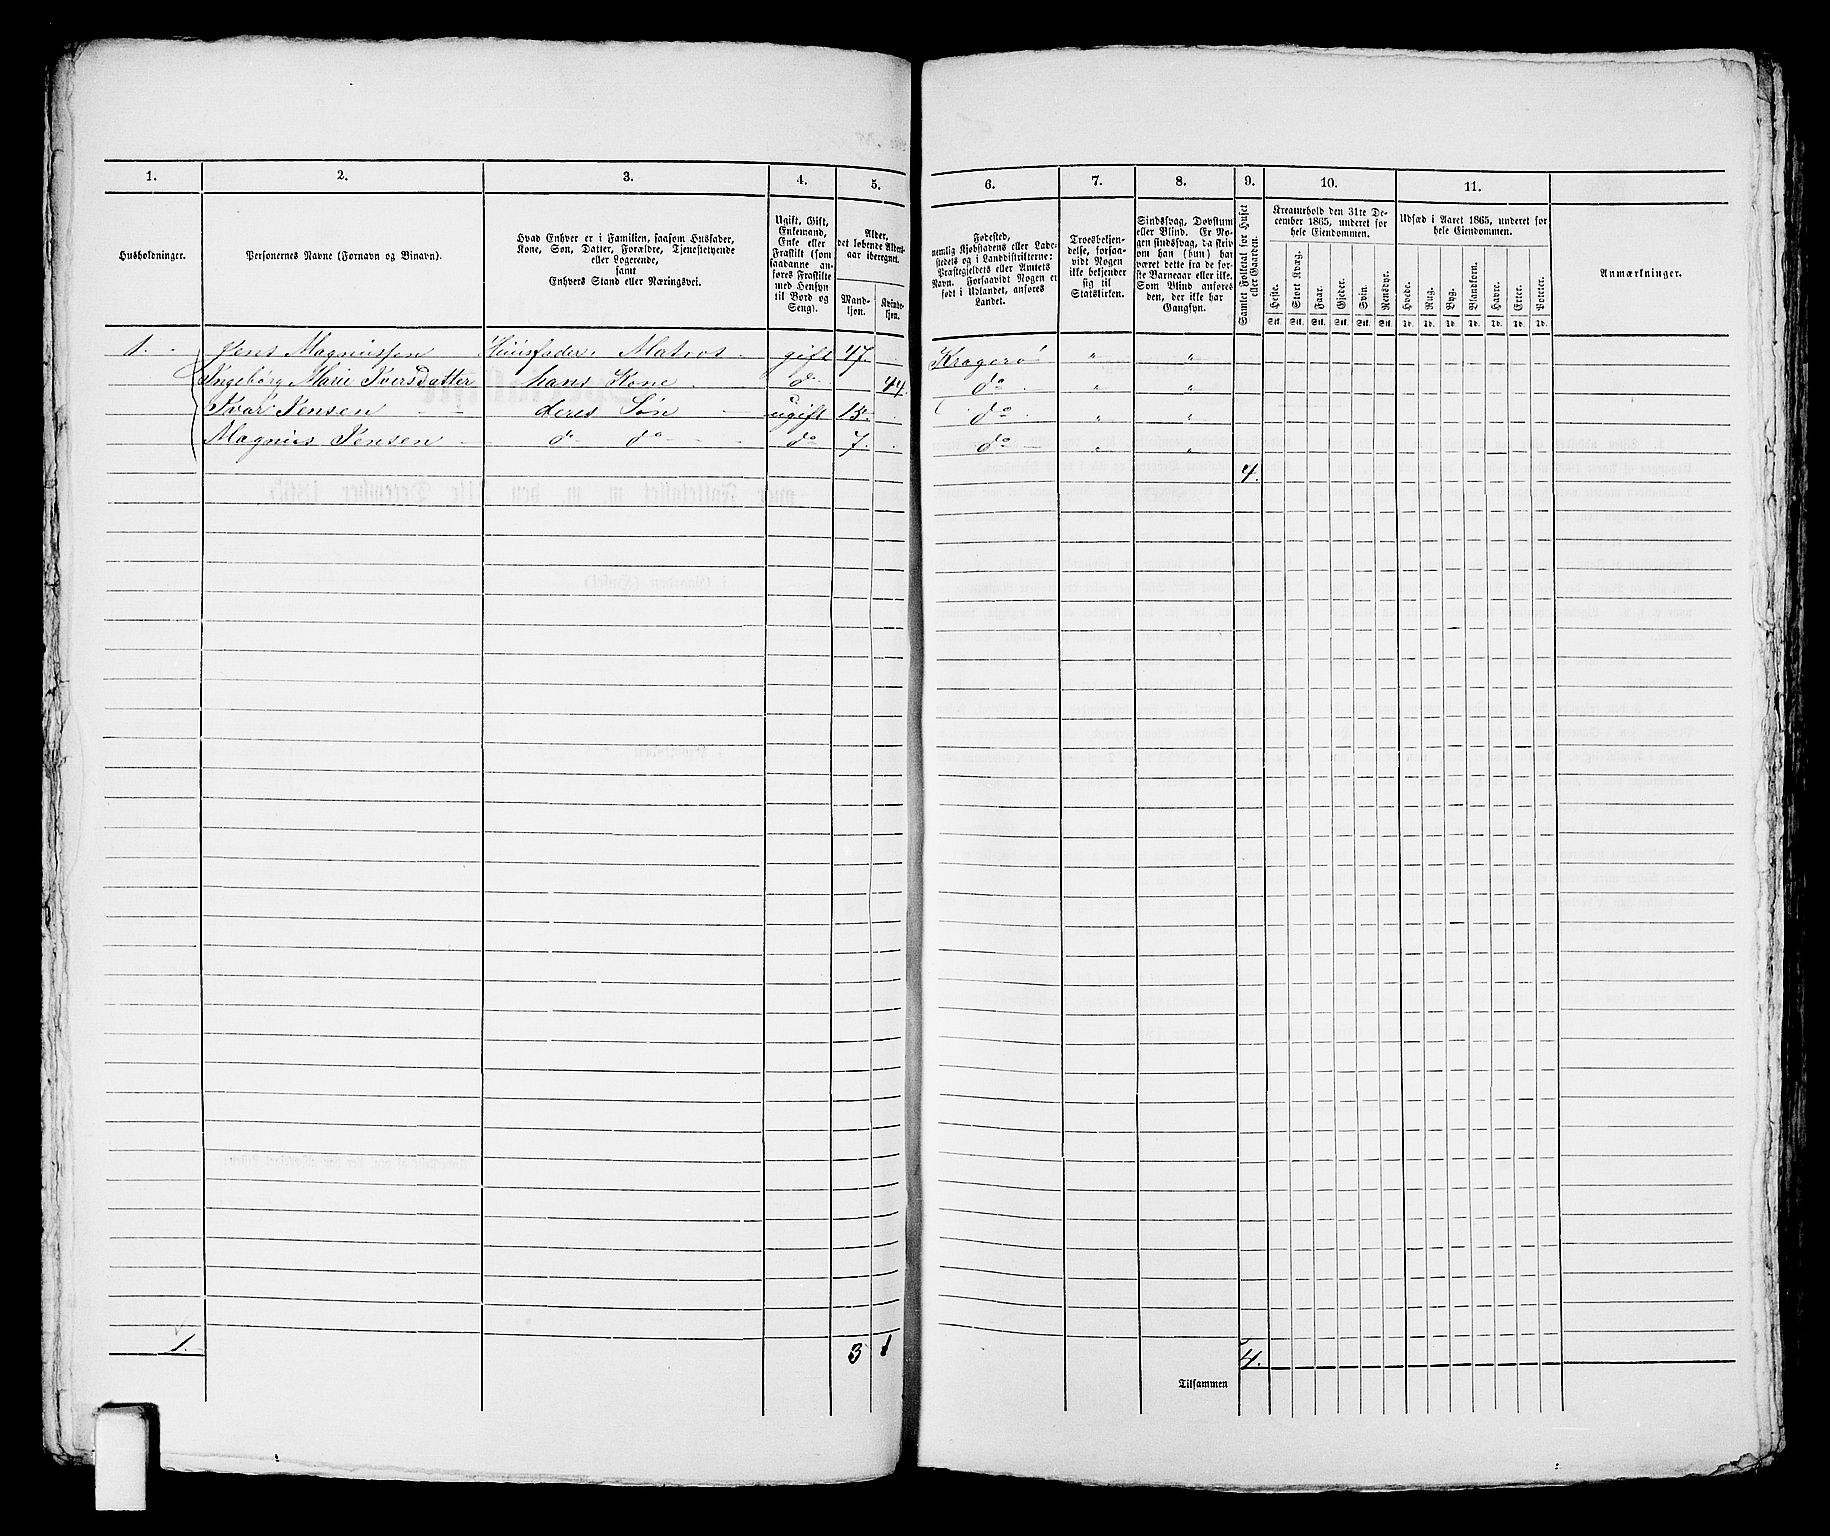 1. 2. 3. 4. 5. 6. 7. 8. 9. 10. 11.
Husholdninger.
Personernes Navne (Fornavn og Binavn).
Hvad Enhver er i Familien, saasom Husfader,
Kone, Søn, Datter, Forældre, Tjenestetyende
eller Logerende,
samt
Enhvers Stand eller Næringsvei.
Ugift, Gift,
Enkemand,
Enke eller
Fraskilt (som
saadanne an-
føres Fraskilte
med Hensyn
til Bord og
Seng).
Alder,
det løbende Alders-
aar iberegnet.
Mand-
kjøn.
Kvinde-
kjøn.
Fødested,
nemlig Kjøbstadens eller Lade-
stedets og i Landdistrikterne:
Præstegjeldets eller Amtets
Navn. Forsaavidt Nogen er
født i Udlandet, anføres
Landet.
Troesbekjen-
delse, forsaa-
vidt Nogen
ikke bekjender
sig til
Statskirken.
Sindssvag, Døvstum
eller Blind. Er No-
gen sindssvag, da skriv
om han (hun) har
været dette fra de før-
ste Barneaar eller ikke.
Som Blind anføres
den, der ikke har
Gangsyn.
Samlet Folketal for Huset
eller Gaarden.
Kreaturhold den 31te De-
cember 1865, underet for
hele Eiendommen.
Heste. Stort Kvæg. Faar. Gjeder. Svin. Rensdyr.
Stk. Stk. Stk. Stk. Stk. Stk.
Udsæd i Aaret 1865, underet for
hele Eiendommen.
Hvede. Rug. Byg. Blandkorn. Havre. Erter. Poteter.
Td. Td. Td. Td. Td. Td. Td.
Anmærkninger.
1. Jens Magnussen Huusfader, Matros gift 47. Kragerø " "
Ingebørg Marie Iversdatter hans Kone do 44. do " "
Ivar Jensen deres Søn ugift 15. do " "
Magnus Jensen do do do 7. do " "
4.
1. 3 1 4.
Tilsammen